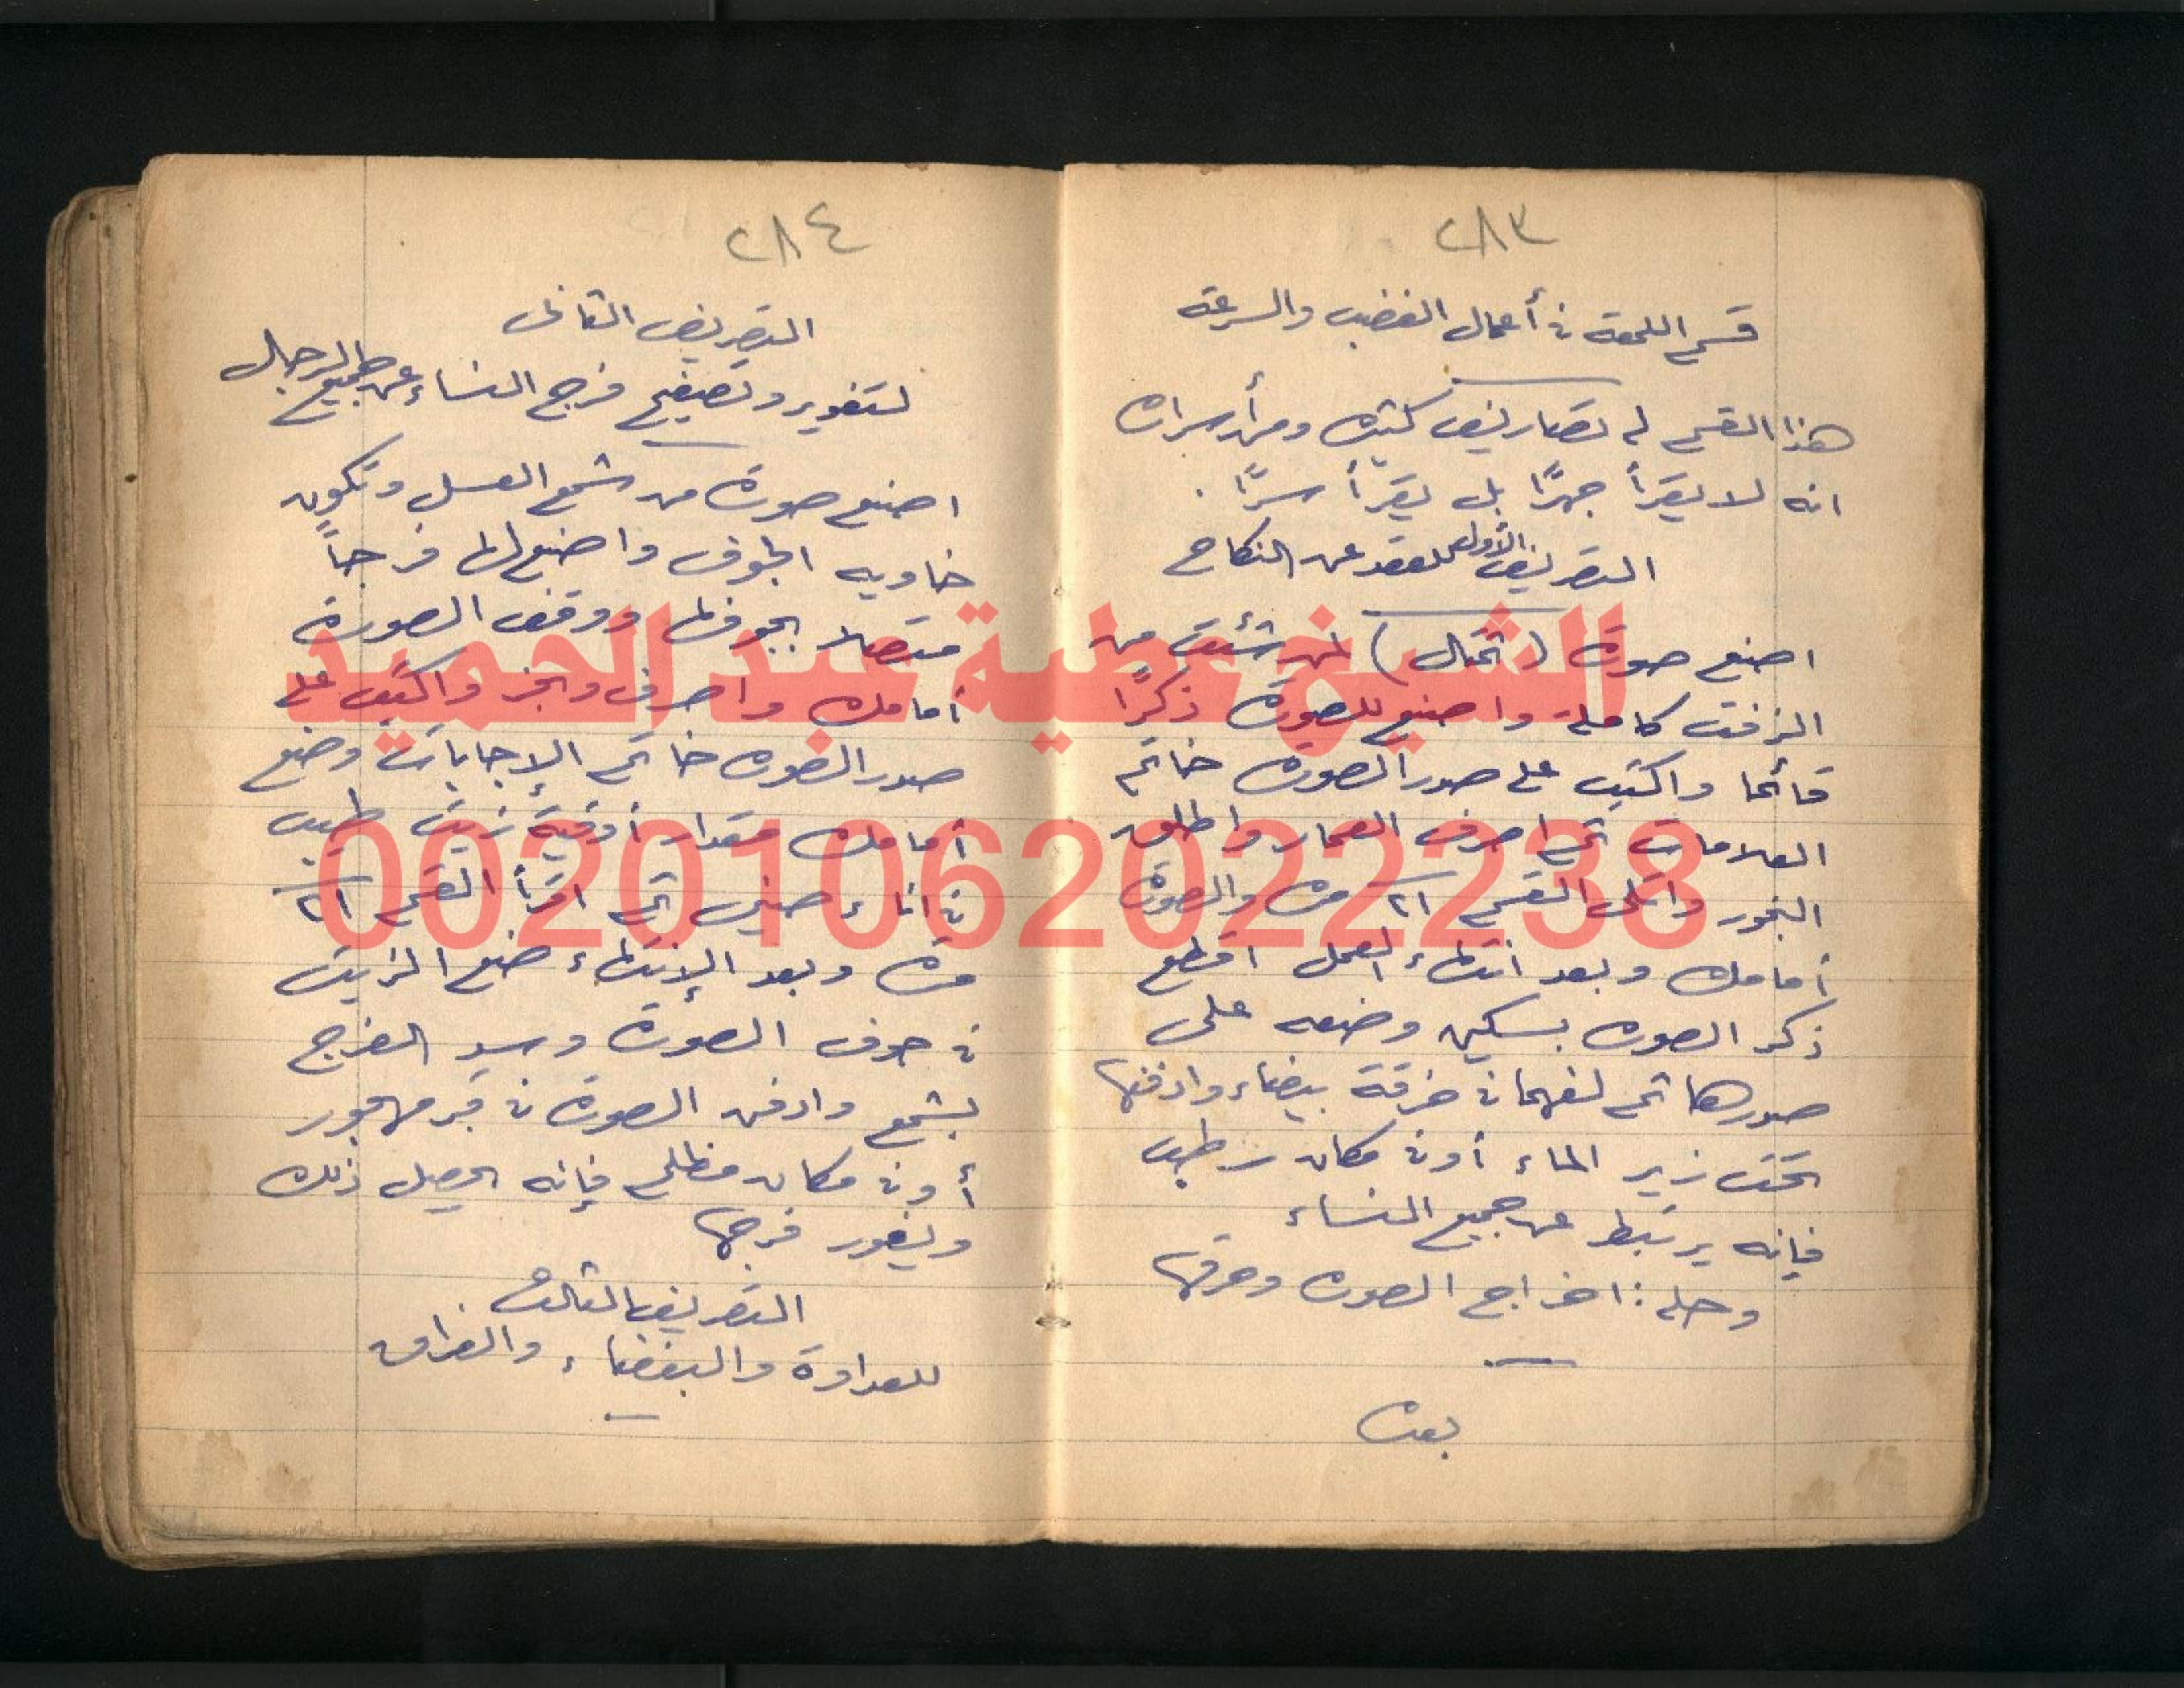 ٢٨٣
قسم اللمعة في أعمال الغضب والسرعة
هذا القسم له تصاريف كثيره ومن أسراره
انه لا يقرأ جهرًا بل يقرأ سرًا .
التصريف الأول للعقد عن النكاح
اصنع صورة (تمثال) لمن شئت من
الزفت كاملة واصنع للصورة ذكرًا
قائما واكتب على صدر الصورة خاتم
العلامات ثم اصرف العمار واطلق
البخور واتلى القسم ٢١ مرة والصورة
أمامك وبعد انتهاء العمل اقطع
ذكر الصورة بسكين وضعه على
صدرها ثم لفهما في خرقة بيضاء وادفنها
تحت زير الماء أو في مكان رطب
فإنه يرتبط عن جميع النساء
وحله : اخراج الصورة وحرقها
بعده
٢٨٤
التصريف الثانى
لتغوير وتصفيح فرج النساء عن جميع الرجال
اصنع صورة من شمع العسل وتكون
خاويه الجوف واصنع لها فرجاً
متصلا بجوفها ووقف الصورة
أمامك واصرف وبخر واكتب على
صدر الصورة خاتم الإجابات وضع
أمامك مقدار أوقية زيت طيب
في اناء صينى ثم اقرأ القسم ٢١
مرة وبعد الإنتهاء ضع الزيت
في جوف الصورة وسد الفرج
بشمع وادفن الصورة في قبر مهجور
أو في مكان مظلم فإنه يحصل ذلك
ويغور فرجها
التصريف الثالث
للعداوة والبغضاء والفراق
الشيخ عطية عبد الحميد
00201062022238